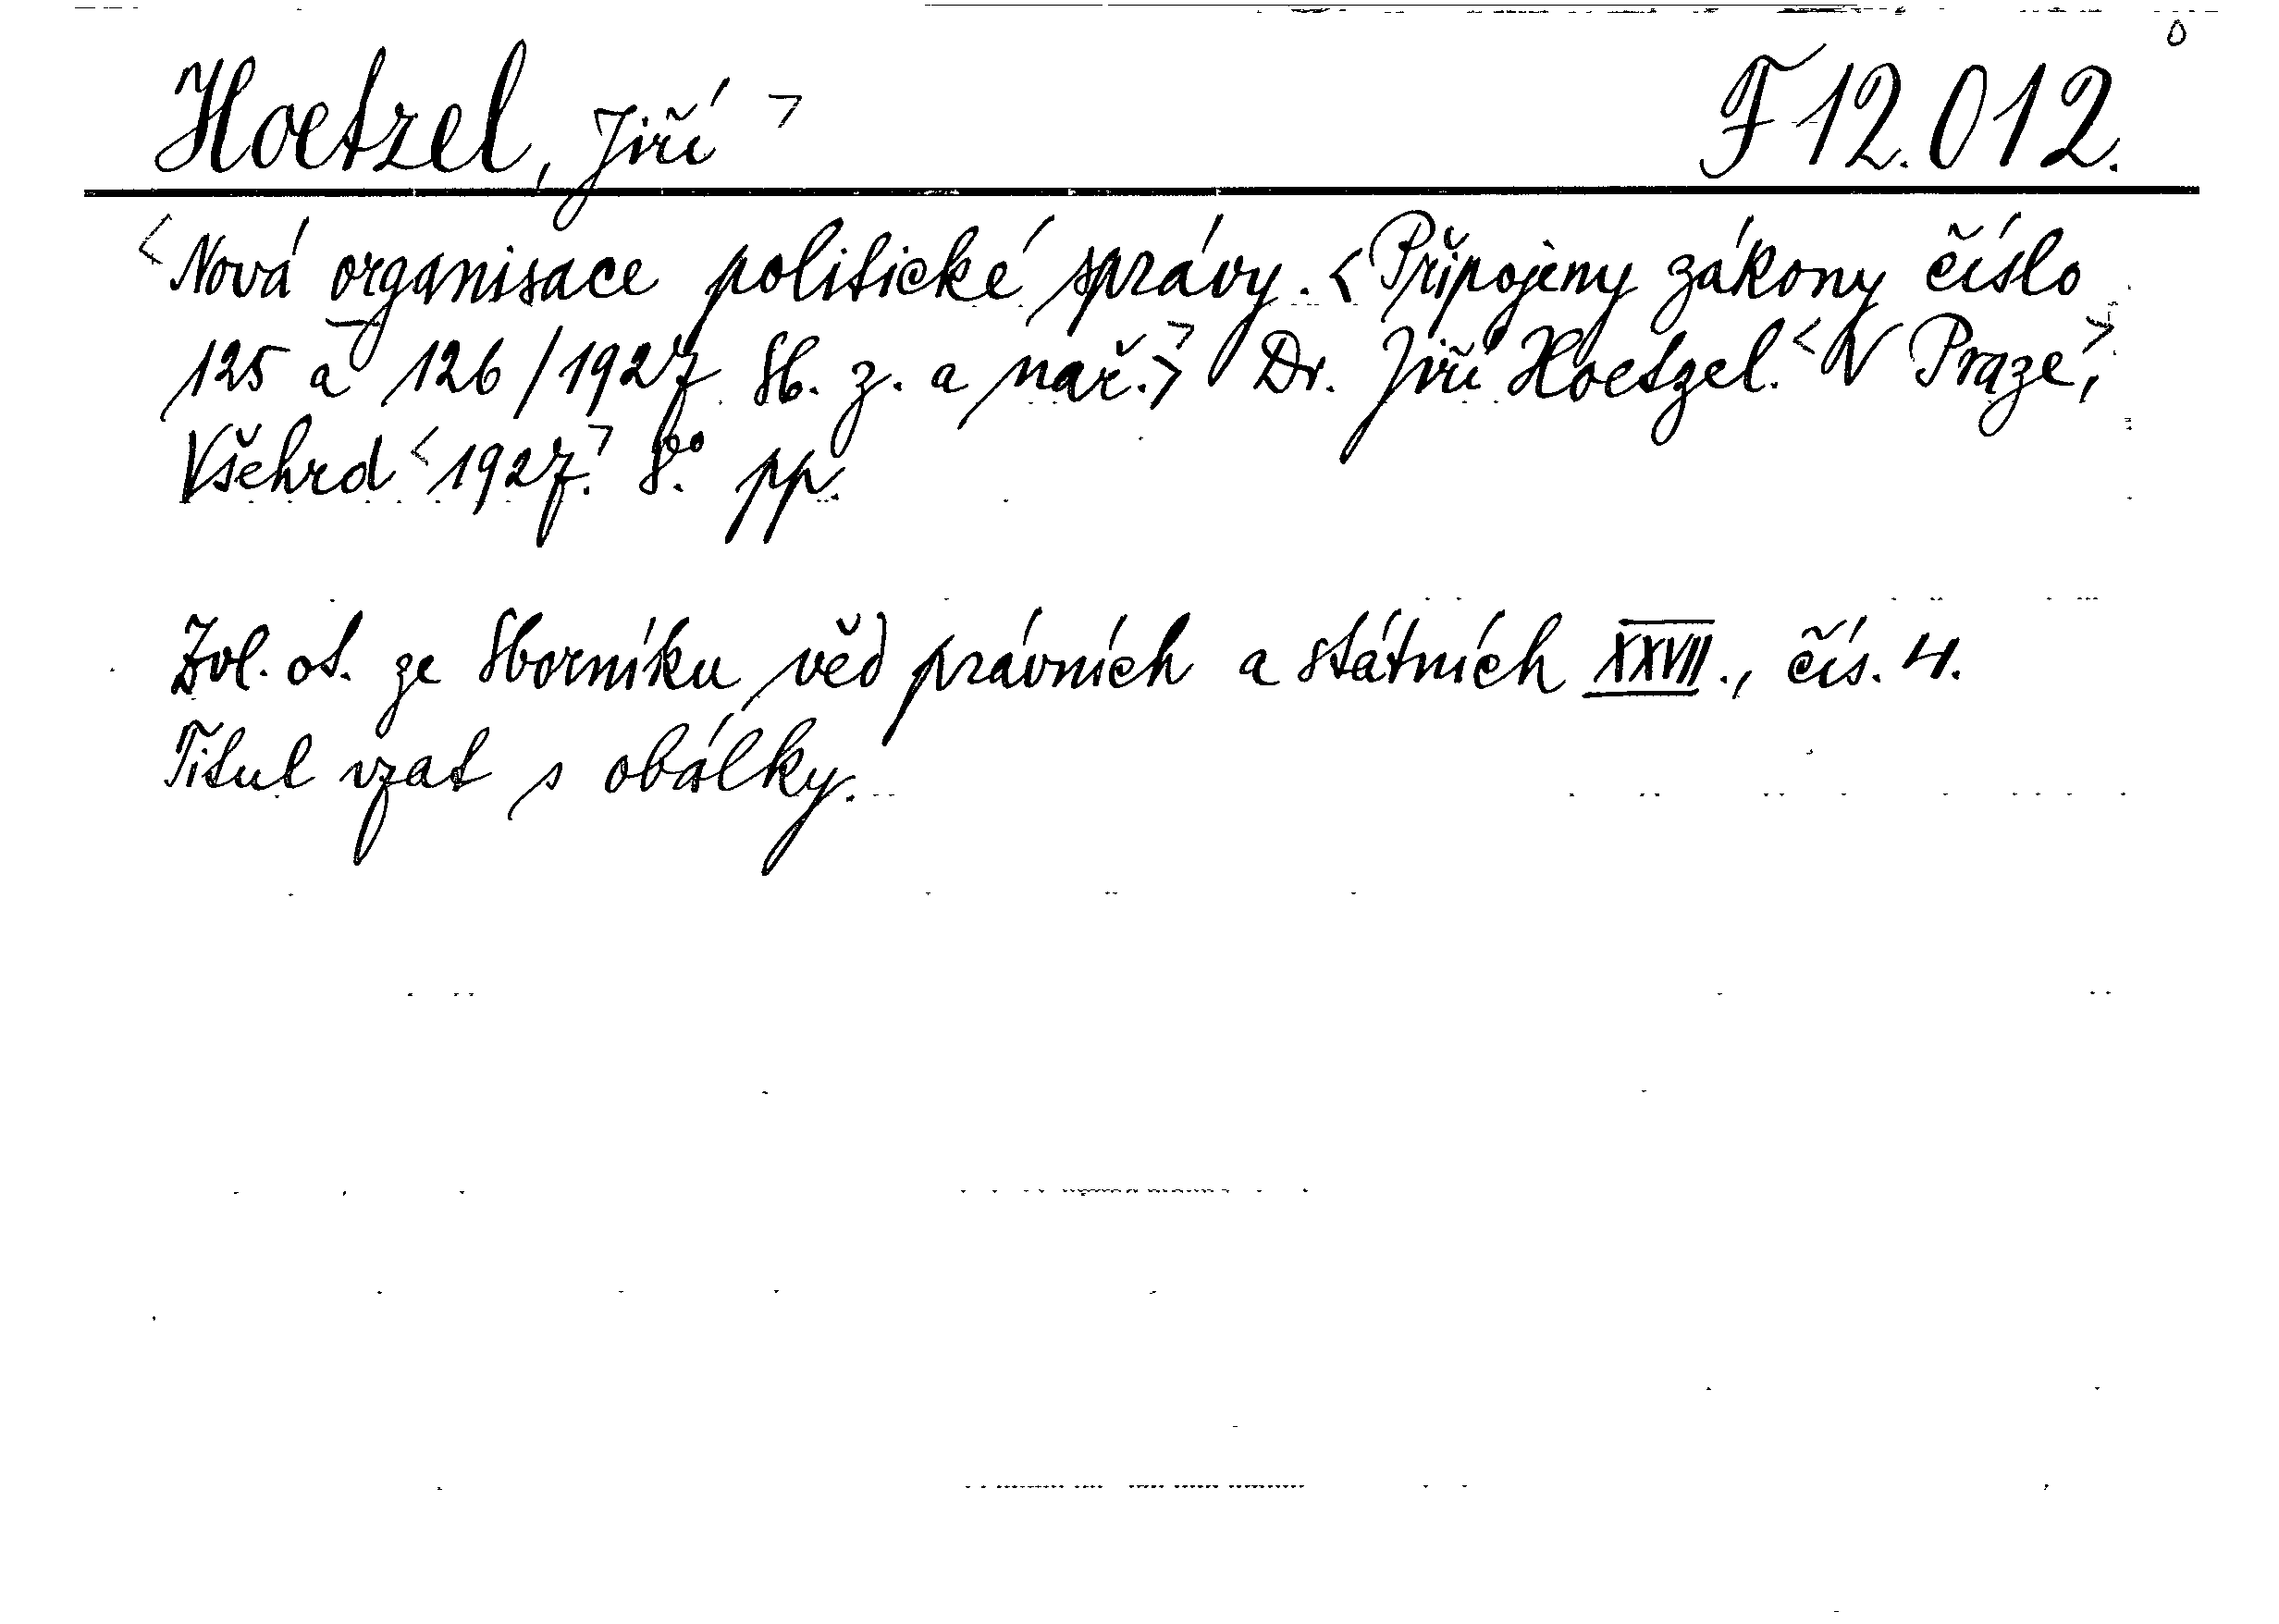 Hoetzel, Jiří > F 12.012.
<Nová organisace politické správy. <Připojeny zákony číslo
125 a 126/1927 Sb. z. a nař.>> Dr. Jiří Hoetzel. <V Praze>,
Všehrd <1927.> 8.° pp.
Zvl. ot. ze Sborníku věd právních a státních XXVII., čís. 4.
Titul vzat s obálky.